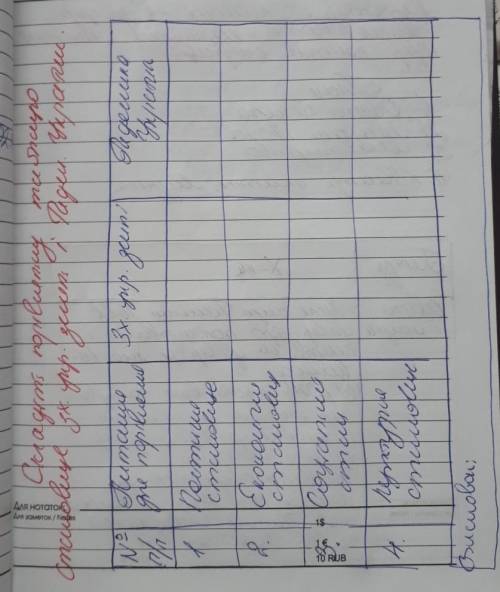 Складіть порівняльну таблицю
становище Зх. укр. землі і Радян. України.
№ п/п
Питання для порівняння
Зх. укр. землі
Радянська Україна
1
Політичне становище
2.
Економічне становище
3.
Соціальне стан
4.
Культурне становище
Висновок:
Для нотаток
Для заметок / Notes
1$
1 €
10 RUB